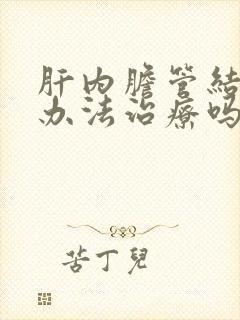 肝内膽管結
办法治療吗
苦丁兒